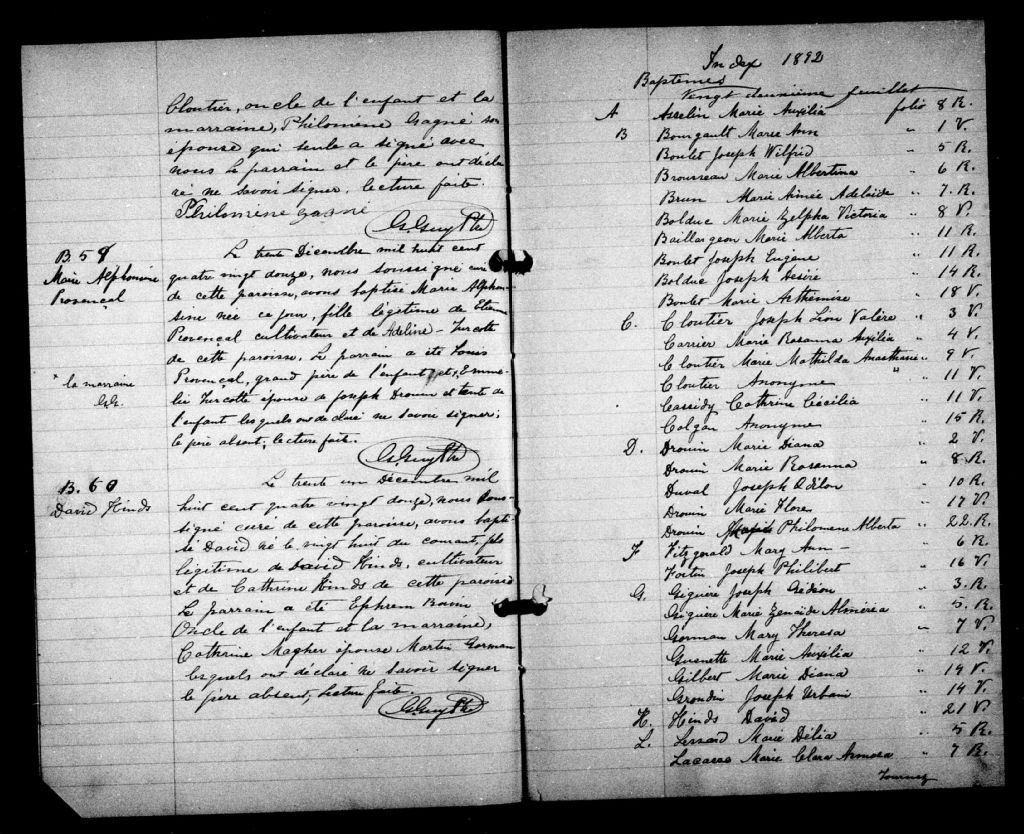 Cloutier, oncle de l'enfant et la
marraine, Philomène Gagné son
épouse qui seule a signé avec
nous. Le parrain et le père ont décla
ré ne savoir signer. lecture faite.
Philomène gagné
B 59
Marie Alphonsine
Provençal
Le trente Décembre mil huit cent
quatre vingt douze, nous soussigné curé
de cette paroisse, avons baptisé Marie Alphon
sine née ce jour, fille légitime de Etienne
Provençal cultivateur et de Adeline Turcotte
de cette paroisse. Le parrain a été Louis
* la marraine
Provençal, grand père de l'enfant et, Emme-
lie Turcotte épouse de Joseph Drouin et tante de
l'enfant lesquels ont déclaré ne savoir signer;
le père absent, lecture faite.
B. 60
David Hinds
Le trente un Décembre mil
huit cent quatre vingt douze, nous sous-
signé curé de cette paroisse, avons bapti
sé David né le vingt huit du courant, fils
légitime de David Hinds, cultivateur
et de Cathrine Hinds de cette paroisse
Le parrain a été Ephrem
Oncle de l'enfant et la marraine,
Cathrine Magher épouse Martin Gorman
lesquels ont déclaré ne savoir signer
le père absent, lecture faite.
Index 1892
Baptêmes
Vingt deuxième feuillet
A Asselin Marie Auxilia folio 8 R.
B Bourgault Marie Ann " 1 V.
Boulet Joseph Wilfrid " 5 R.
Brousseau Marie Albertina " 6 R.
Brun Marie Aimée Adelaide " 7. R.
Bolduc Marie Zelpha Victoria " 8 V.
Baillargeon Marie Alberta " 11 R.
Boulet Joseph Eugene " 11 R.
Bolduc Joseph Desiré " 14 R.
Boulet Marie Arthémise " 18 V.
C. Cloutier Joseph Léon Valère " 3 V.
Carrier Marie Rosanna Auxilia " 4 V.
Cloutier Marie Mathilda Anasthasie " 9 V.
Cloutier Anonyme " 11 V.
Cassidy Cathrine Cécilia " 11 V.
Colgan Anonyme " 15 R.
D. Drouin Marie Diana " 2 V.
Drouin Marie Rosanna " 8 R.
Duval Joseph Odilon " 10 R.
Drouin Marie Flore " 17 V.
Drouin Philomene Alberta " 22 R.
F Fitzgerald Mary Ann – " 6 R.
Fortin Joseph Philibert " 16 V.
G. Giguère Joseph Gédéon " 3. R.
Giguère Marie Zenaïde Alméréa " 5. R.
Gorman Mary Theresa " 7 V.
Guenette Marie Auxilia " 12 V.
Gilbert Marie Diana " 14 V.
Grondin Joseph Urbain " 14 V.
H. Hinds David " 21 V.
L. Lessard Marie Délia " 5 R.
Lacasse Marie Clara Armosa " 7 R.
Tournez